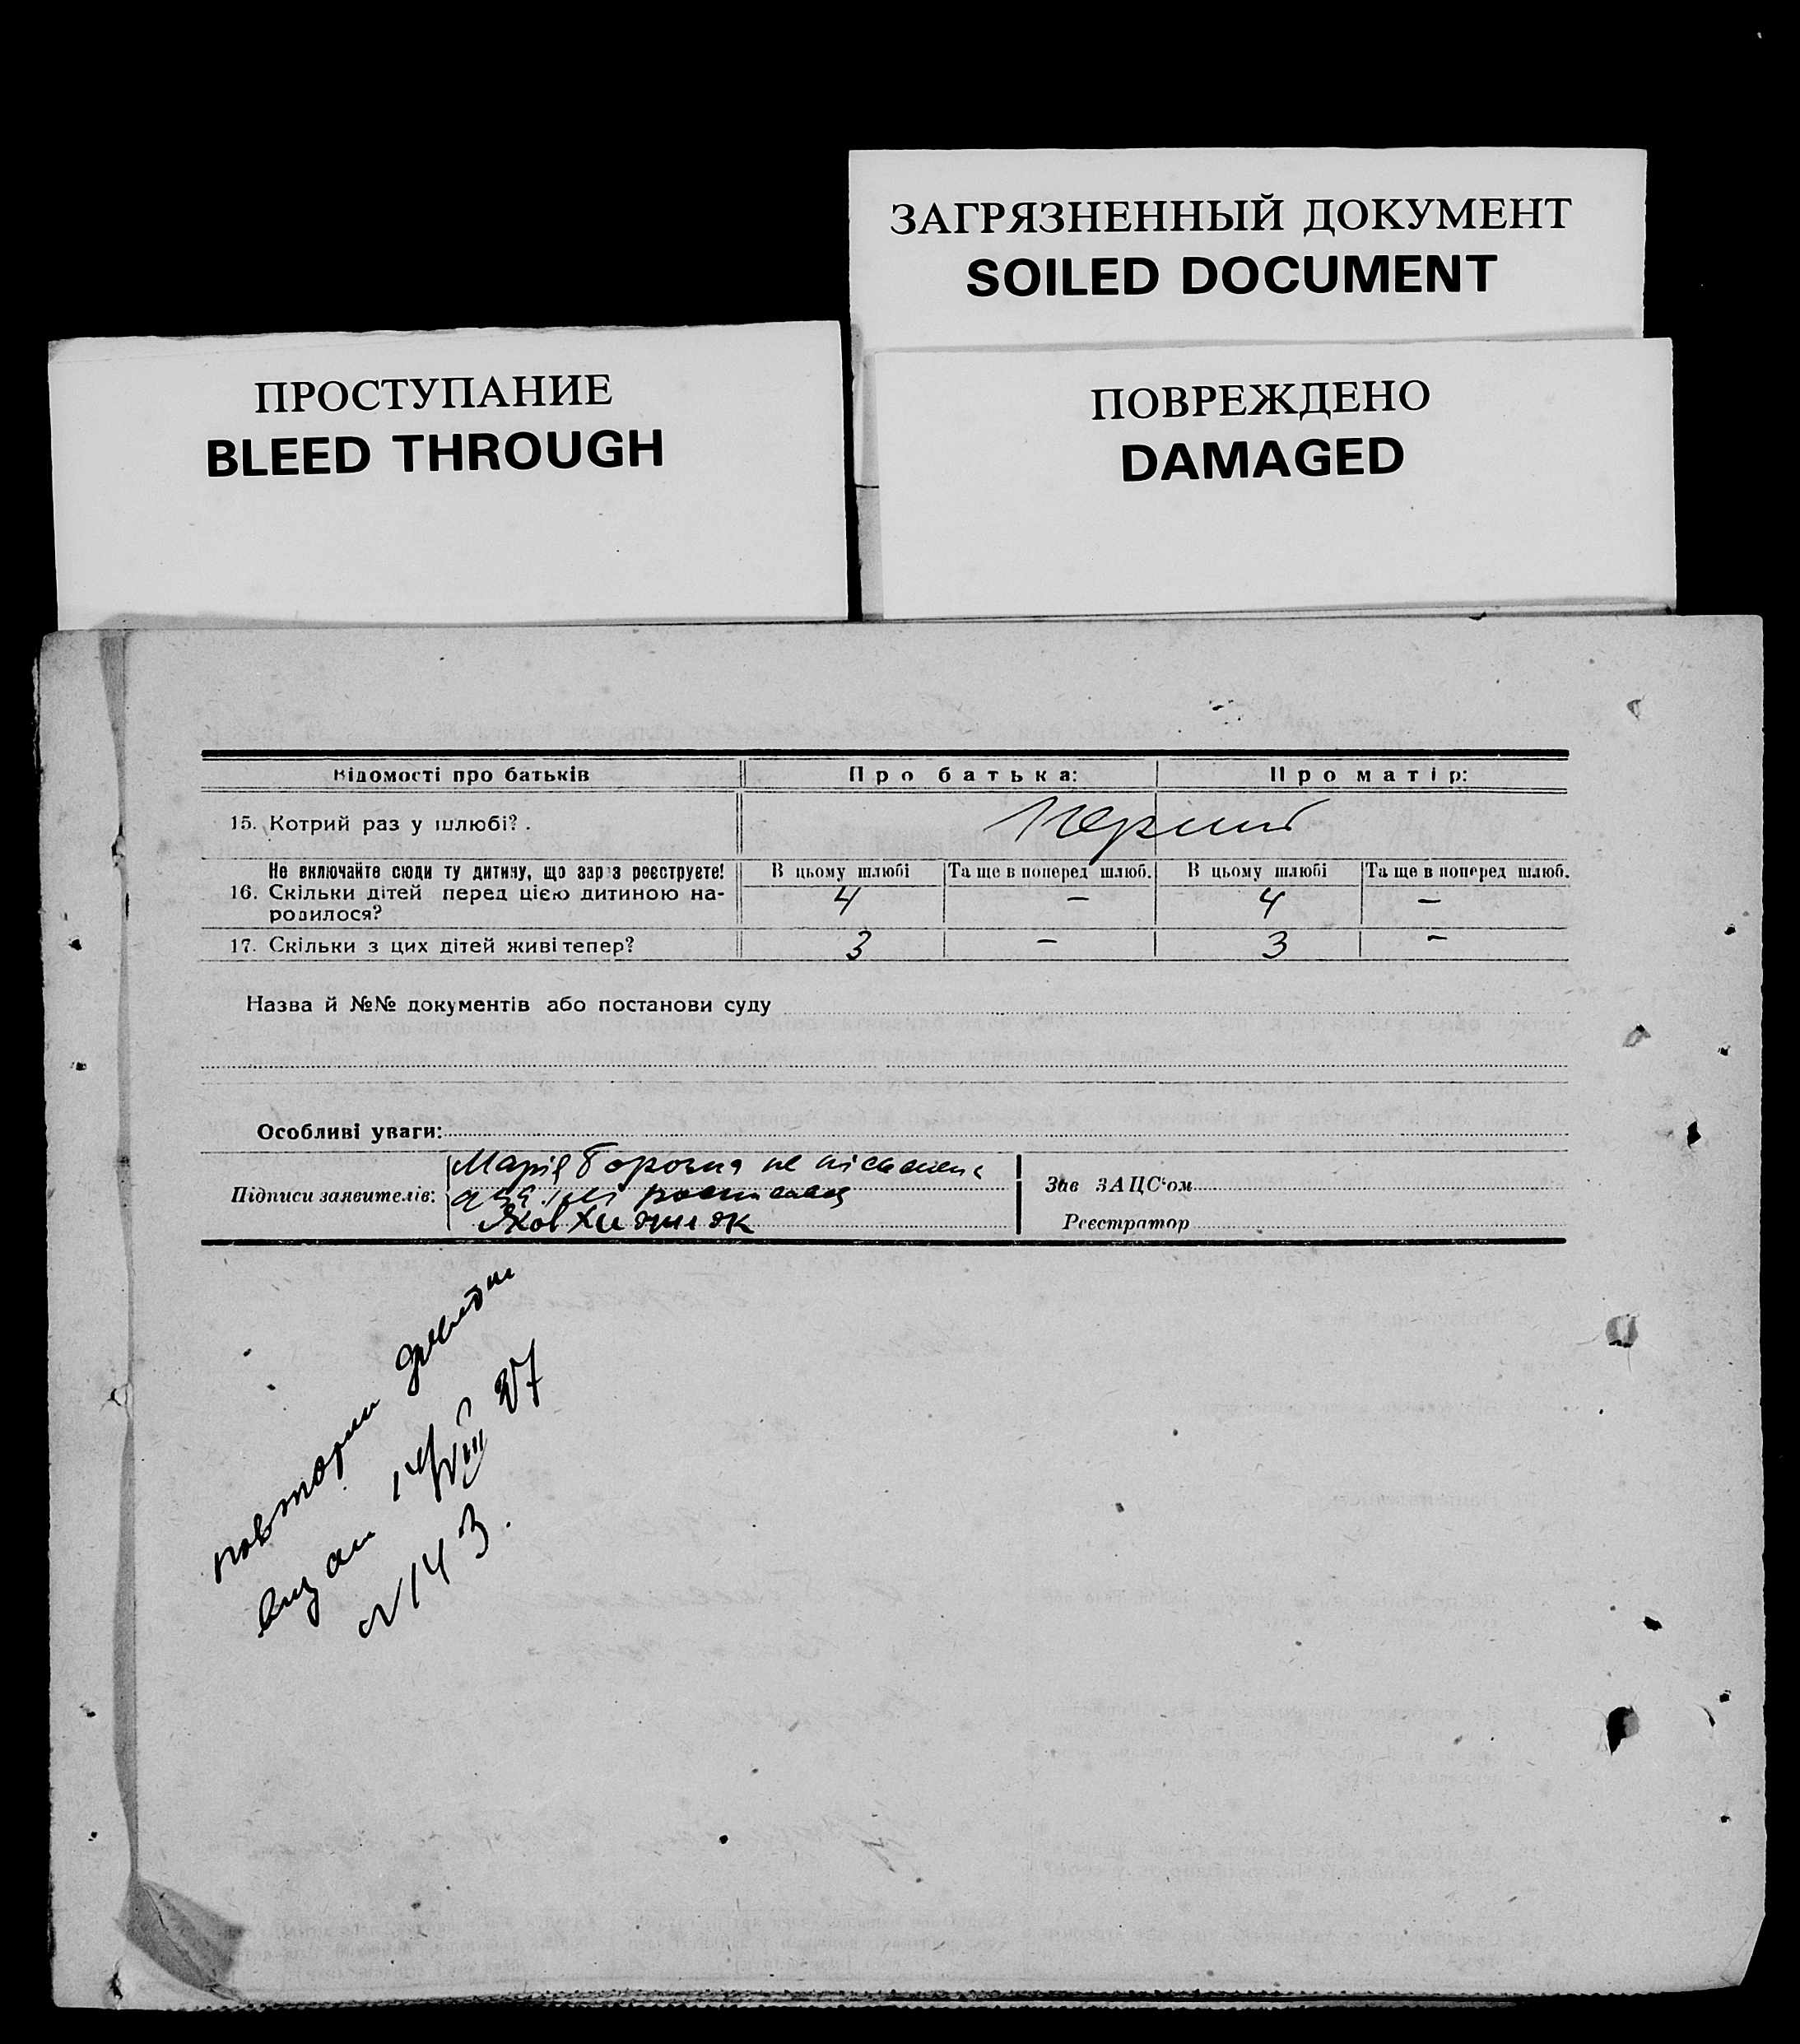 ЗАГРЯЗНЕННЫЙ ДОКУМЕНТ
SOILED DOCUMENT
ПРОСТУПАНИЕ
BLEED THROUGH
ПОВРЕЖДЕНО
DAMAGED
Відомості про батьків Про батька: Про матір:
15. Котрий раз у шлюбі?.
Не включайте сюди ту дитину, що зараз реєструєте! В цьому шлюбі Та ще в поперед шлюб. В цьому шлюбі Та ще в поперед шлюб.
16. Скільки дітей перед цією дитиною на- 4 — 4 —
родилося?
17. Скільки з цих дітей живі тепер? 3 — 3 —
Назва й №№ документів або постанови суду
Особливі уваги:
Марія не
Підписи заявителів:
Яков
Зав ЗАЦС'ом
Реєстратор
повторни
14/VIII 37
N 143.